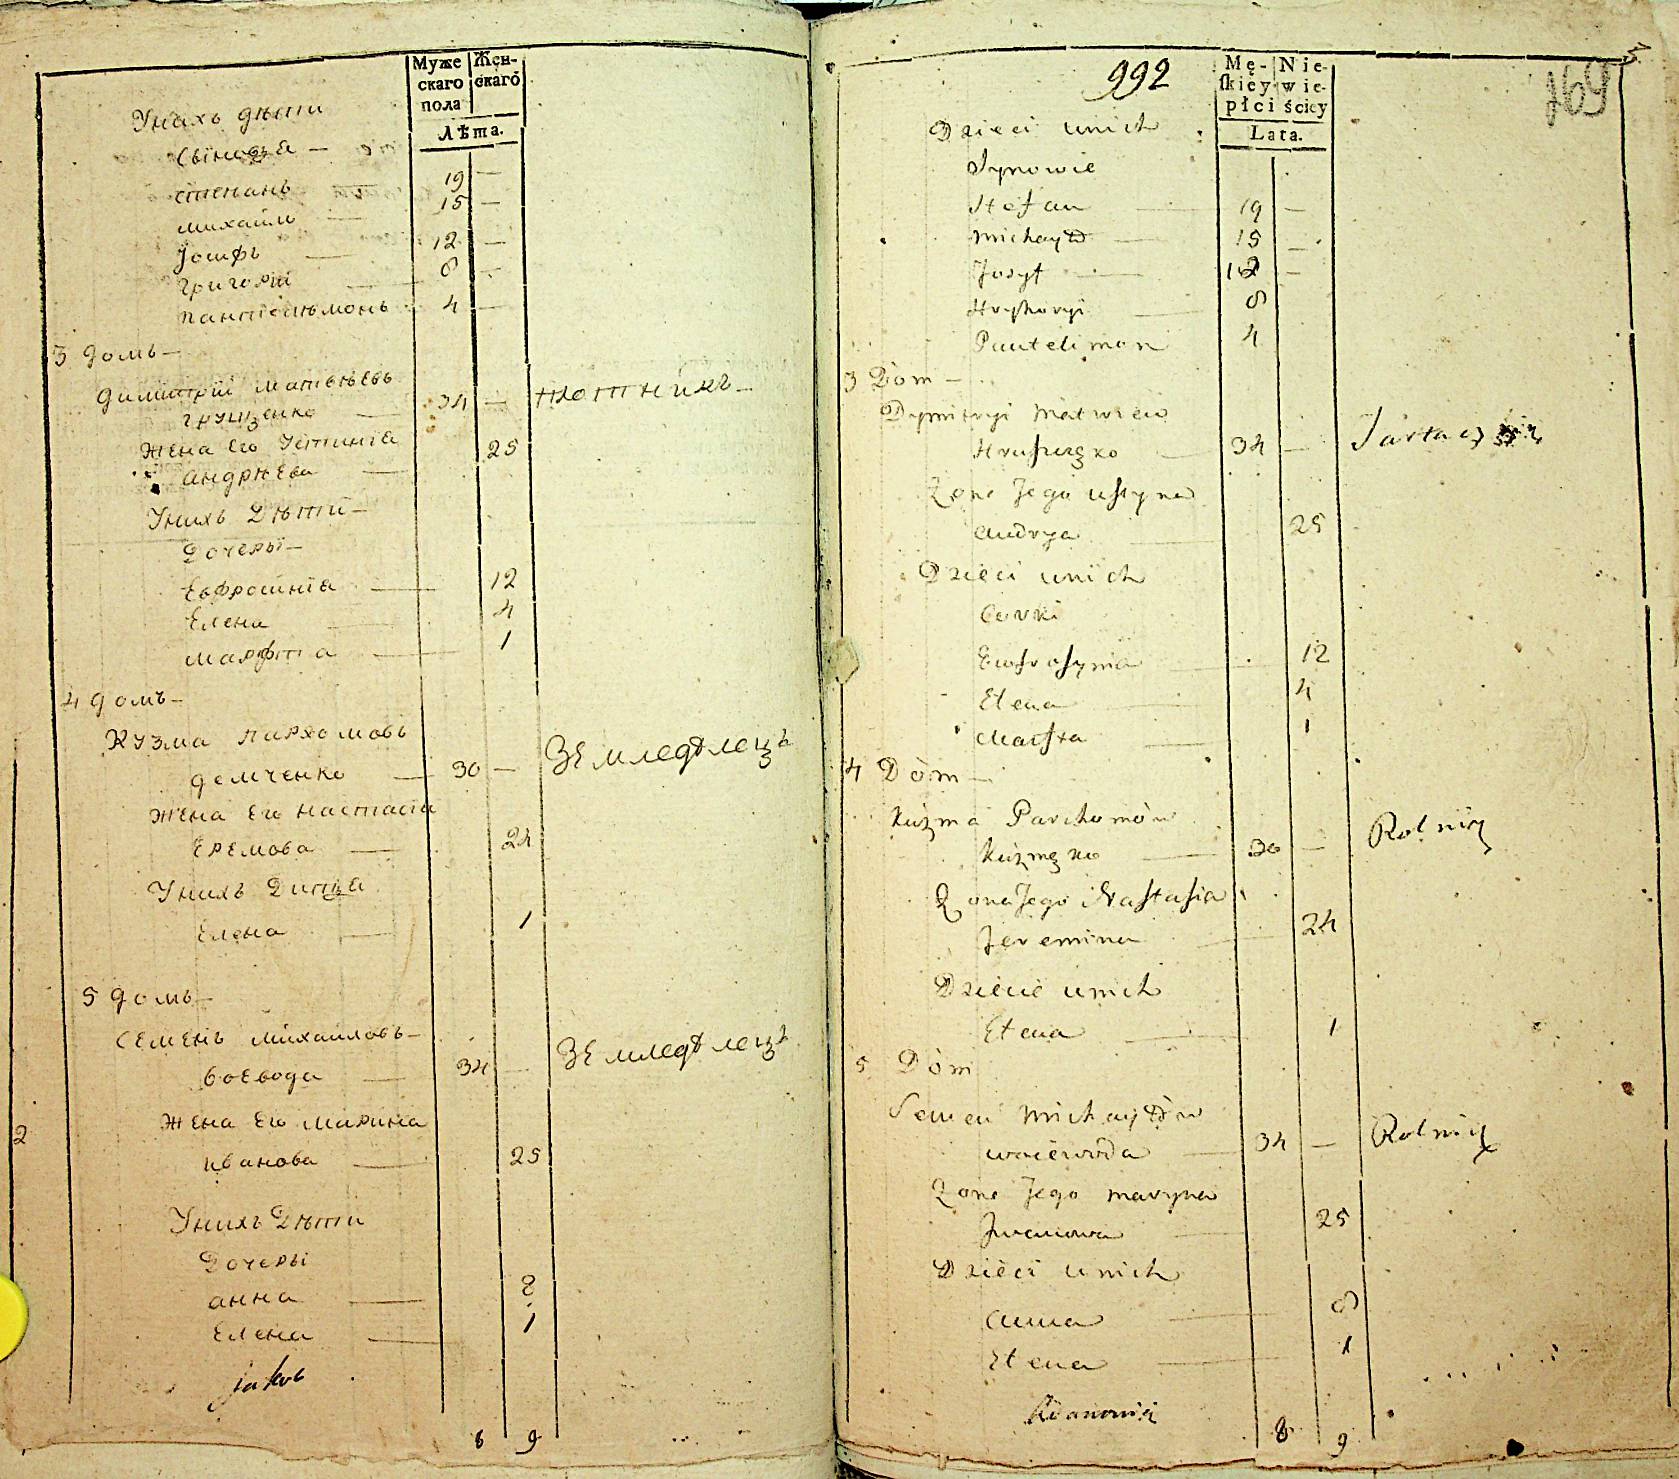 Муже
скаго
пола
Жен-
скаго
Лѣта.
Унихъ дѣти
Сынов̾а —
степанъ 19 —
михаилъ — 15 —
Іосифъ — 12 —
григорій — 8 —
пантѣлѣмонъ 4 —
3 домъ —
димитрій матвѣевъ
грущенко — 34 — плотникъ —
жена его Устинїа 25
андрѣева —
Унихъ Дѣти —
Дочеры —
Евфросинїа — 12
Елена — 4
марфта — 1
4 домъ —
Кузма пархомовъ
демченко — 30 — Земледѣлецъ
жена его настасіа
Еремова — 24
Унихъ Дитџа
Елена — 1
5 домъ —
семенъ михаиловъ —
воевода — 34 — Земледѣлецъ
жена его марина
иванова — 25
2
Унихъ Дѣти
Дочеры
анна — 8
Елена — 1
jakob
8 9
992
169
Mę-
ſkiey
płci
Nie-
wie-
ściey
Lata.
Dzieci unich
Synowie
Stefan — 19 —
Michayło — 15 —
Jozyf — 12 —
Hryhoryi — 8
Pantelimon 4
3 Dom —
Dymitryi Matwiew
Hruszczęko — 34 —
Zona Jego ustyna
Andrya — 25
Dzieci unich
Corki
Ewfroſynia — 12
Elena — 4
Marfta — 1
4 Dòm —
Kuzma Parchomòw
Kuzmęko — 30 — Rolnik
Zona Jego Naſtaſia
Jeremina — 24
Dziecie unich
Elena — 1
5 Dòm
Semen Michayłòw
woiewoda — 34 — Rolnik
Zona Jego maryna
Jwanowa — 25
Dzieci unich
Anna — 8
Elena — 1
8 9